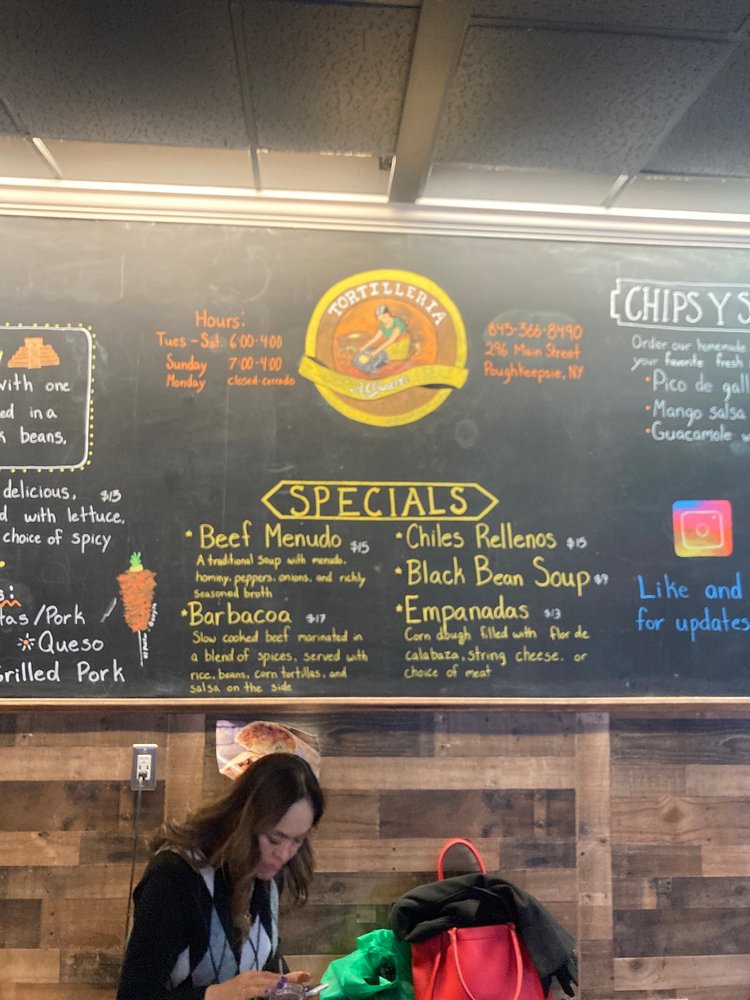 with one
ed in a
k beans,
delicious. $13
d with lettuce,
choice of spicy
s:
tas/Pork
Queso
Grilled Pork
Hours:
Tues - Sat 6:00-4:00
Sunday 7:00-4:00
Monday closed-cerrado
TORTILLERIA
845-366-8490
296 Main Street
Poughkeepsie, NY
SPECIALS
* Beef Menudo $15
A traditional soup with menudo,
hominy, peppers, onions, and richly
seasoned broth
* Barbacoa $17
Slow cooked beef marinated in
a blend of spices, served with
rice, beans, corn tortillas, and
salsa on the side
* Chiles Rellenos $15
* Black Bean Soup $9
* Empanadas $13
Corn dough filled with flor de
calabaza, string cheese, or
choice of meat
CHIPS Y S
Order our homemade
your favorite fresh
• Pico de gall
• Mango salsa
• Guacamole w
Like and
for updates